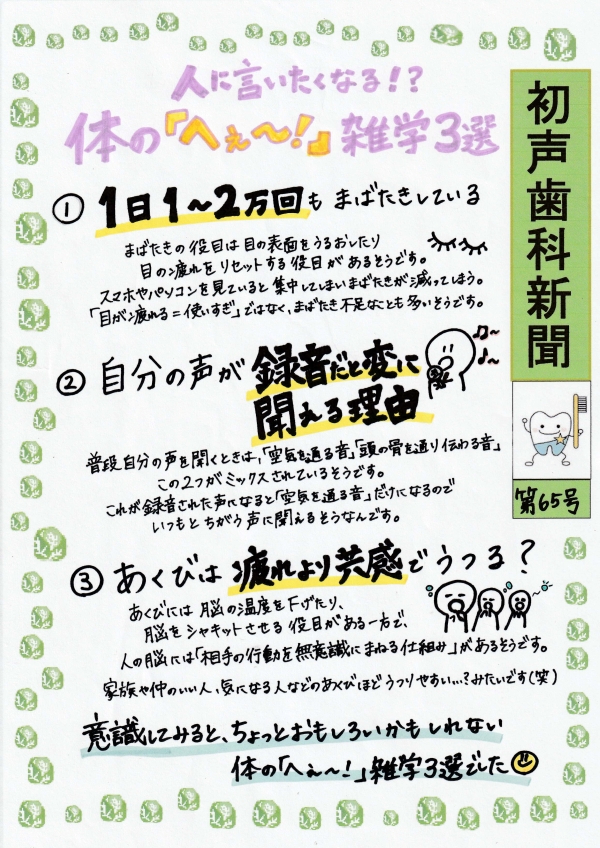 人に言いたくなる!?
体の「へぇ〜!」雑学3選
初声歯科新聞
第65号
① 1日1〜2万回も まばたきしている
まばたきの役目は目の表面をうるおしたり
目の疲れをリセットする役目があるそうです。
スマホやパソコンを見ていると集中してしまいまばたきが減ってしまう。
「目が疲れる=使いすぎ」ではなく、まばたき不足なことも多いそうです。
② 自分の声が 録音だと変に
聞える理由
普段自分の声を聞くときは、「空気を通る音」「頭の骨を通り伝わる音」
この2つがミックスされているそうです。
これが録音された声になると「空気を通る音」だけになるので
いつもとちがう声に聞えるそうなんです。
③ あくびは 疲れより共感でうつる?
あくびには脳の温度を下げたり、
脳をシャキットさせる役目がある一方で、
人の脳には「相手の行動を無意識にまねる仕組み」があるそうです。
家族や仲のいい人、気になる人などのあくびほどうつりやすい…?みたいです(笑)
意識してみると、ちょっとおもしろいかもしれない
体の「へぇ〜!」雑学3選でした